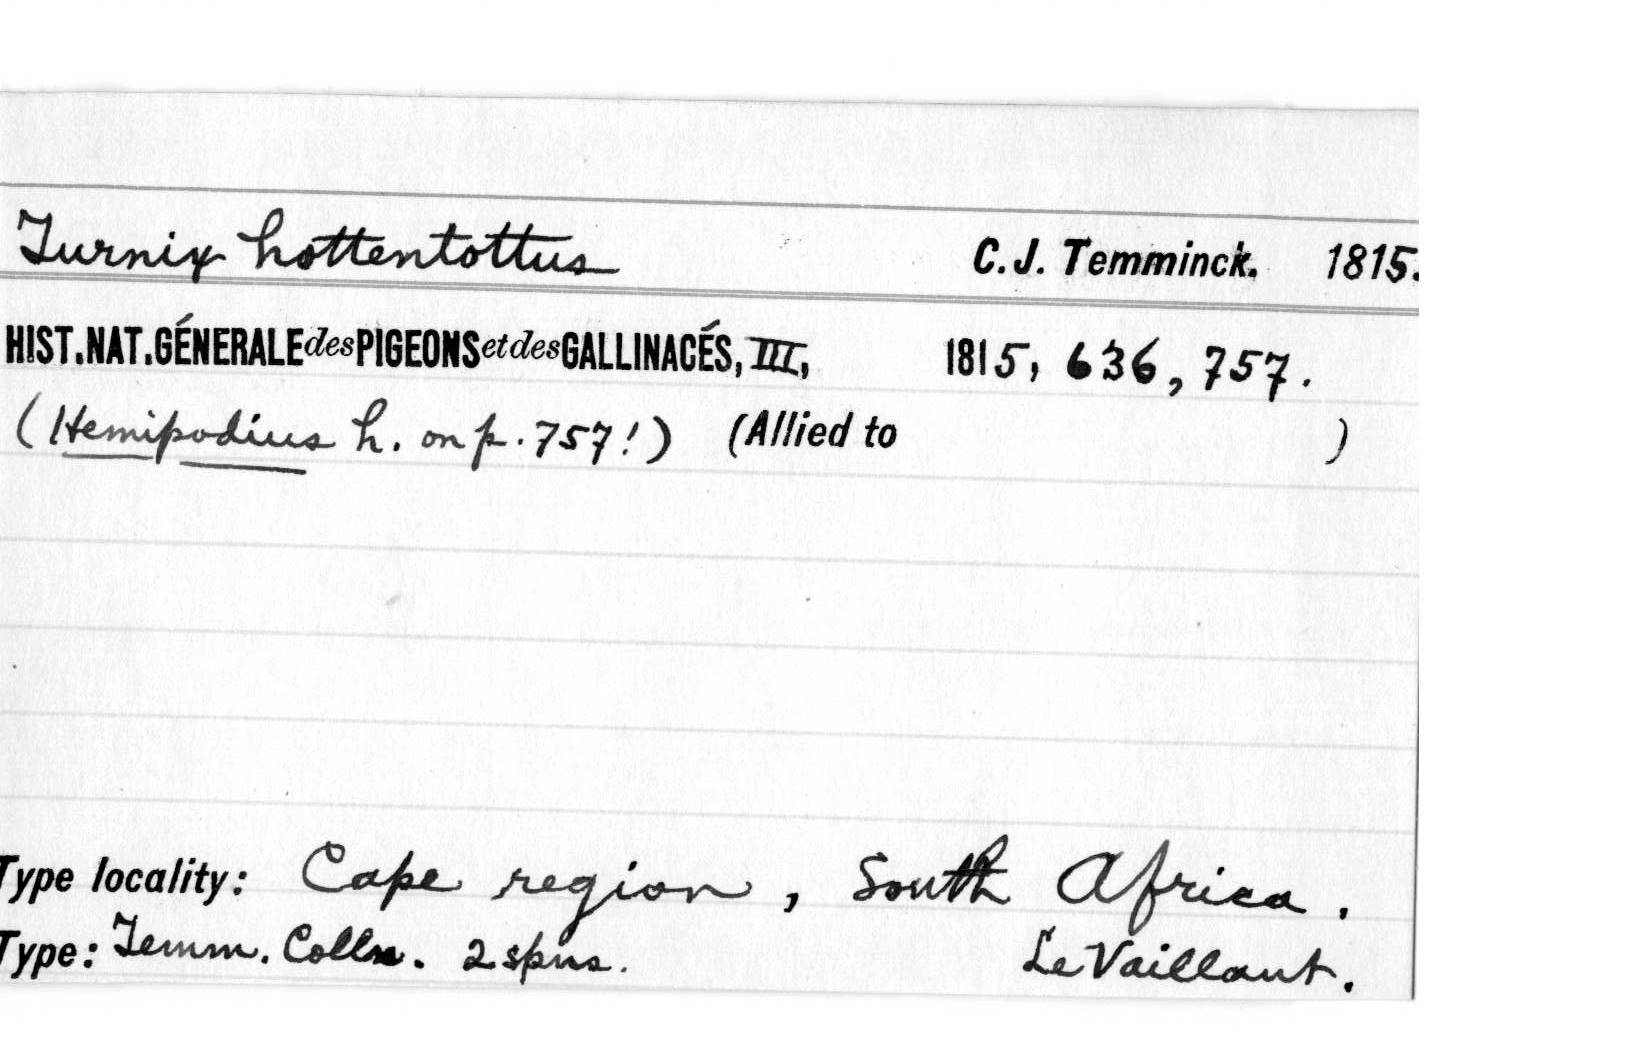 Turnix hottentottus C.J. Temminck. 1815.
HIST.NAT.GÉNERALE des PIGEONS et des GALLINACÉS, III, 1815, 636, 757.
(Hemipodius h. on p. 757!) (Allied to )
Type locality: Cape region, South Africa.
Type: Temm. Colln. 2 spns. Le Vaillant.